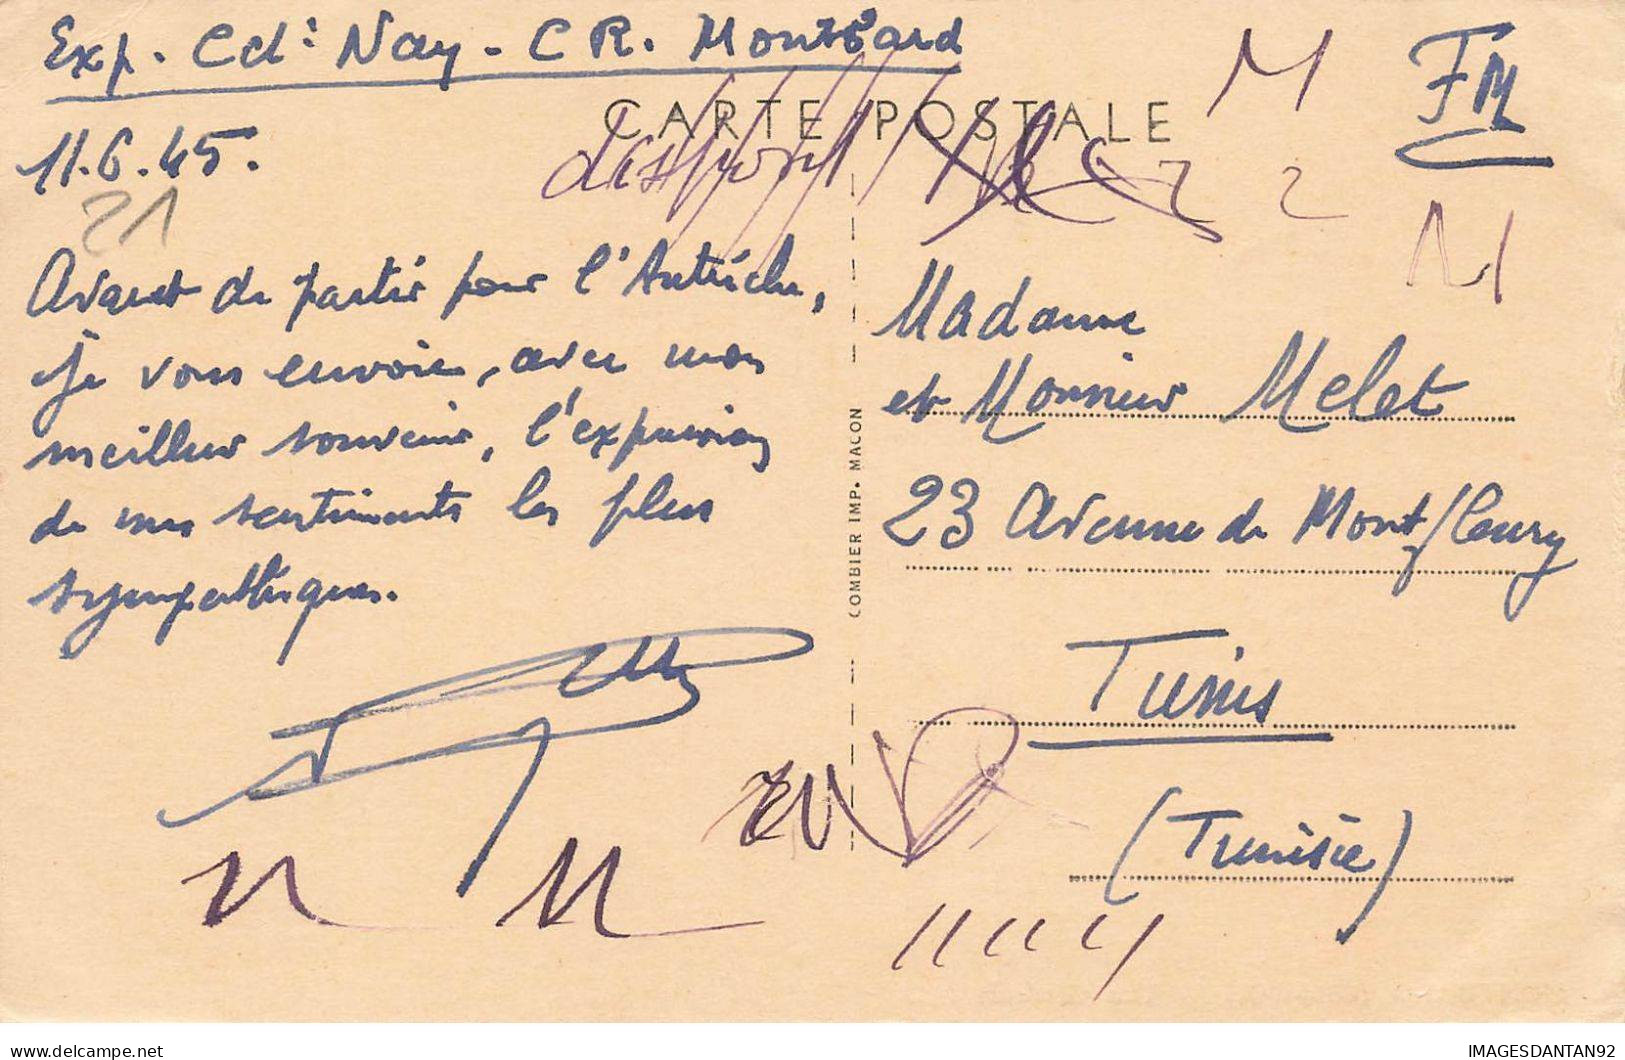 Exp. Cdt Nay - C R. Montbard
CARTE POSTALE
FM
11.6.45.
21
M
M
Avant de partir pour l'Autriche,
je vous envoie, avec mon
meilleur souvenir, l'expression
de mes sentiments les plus
sympathiques.
COMBIER IMP. MACON
Madame
et Monsieur Melet
23 Avenue de Montfleury
Tunis
(Tunisie)
delcampe.net
IMAGESDANTAN92